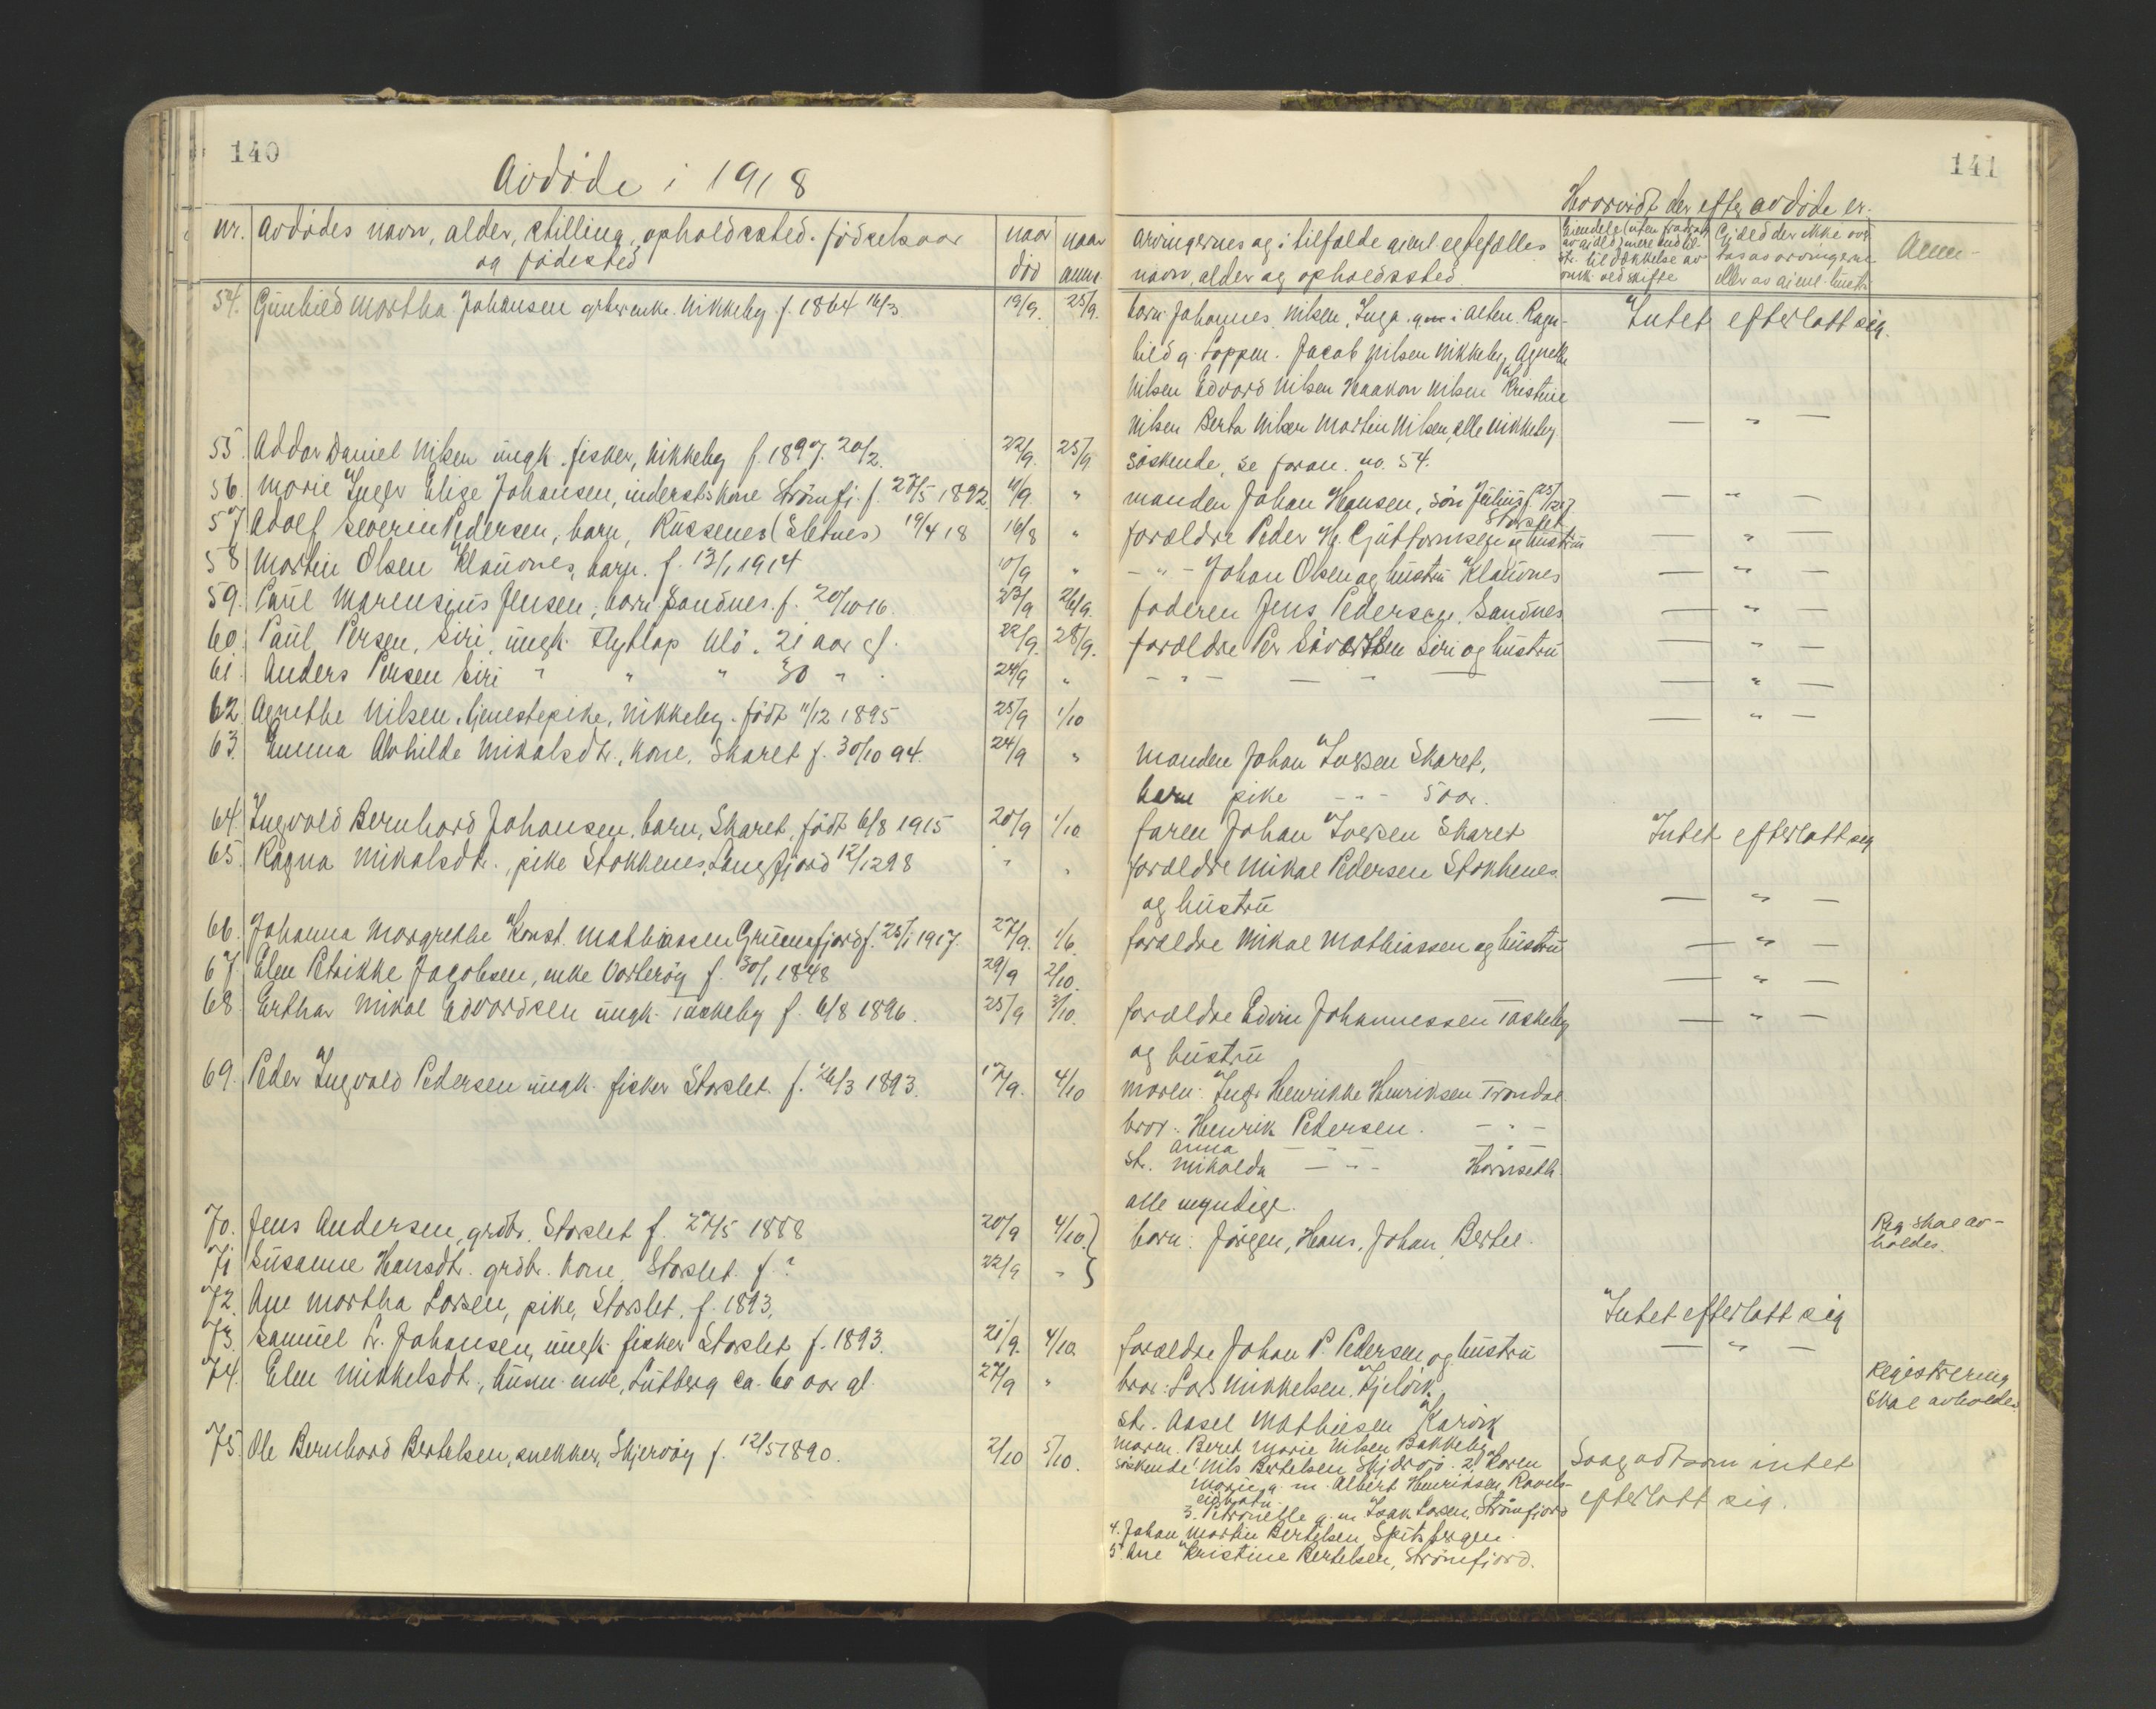 140
Avdøde i 1918
nr. avdødes navn, alder, stilling, opholdssted. fødselsaar
og fødested
naar
død
naar
anm.
54. Gunhild Martha Johansen gbr.enke. Nikkeby f. 1864 16/3 19/9. 25/9.
55. Addor Daniel Nilsen ungk. fisker, Nikkeby f. 1897. 20/2. 22/9. 25/9
56. Marie Inger Elise Johansen, inderstskone Strömfj. f. 27/5 1892. 11/9. "
57 Adolf Severin Pedersen, barn, Russenes (Sletnes) 19/4 18 16/8 "
58 Martin Olsen Klauvnes, barn. f. 13/1 1914 10/9 "
59. Paul Marensius Jensen, barn Sandnes. f. 20/10 16. 23/9 26/9.
60. Paul Persen, Siri, ungk. flytlap Ulö. 21 aar gl. 22/9. 28/9.
61. Anders Persen Siri " " " 30 " . 24/9 "
62. Agnethe Nilsen, tjenestepike, Nikkeby. født 11/12 1895 25/9 1/10
63. Emma Alvhilde Mikalsdt., kone, Skaret f. 30/10 94. 24/9 "
64. Ingvald Bernhard Johansen, barn, Skaret, født 6/8 1915 20/9 1/10
65. Ragna Mikalsdt., pike Stokkenes, Langfjord 12/12 98 " "
66. Johanna Margrethe Konst. Mathiassen Grunnfjord f. 25/1 1917. 27/9. 1/6.
67. Elen Petrikke Jacobsen, enke Vorterøy f. 30/1 1848 29/9 2/10.
68. Erthar Mikal Edvardsen ungk. Taskeby f. 6/8 1896. 25/9 3/10.
69. Peder Ingvald Pedersen ungk. fisker Storslet. f. 26/3 1893. 17/9. 4/10
70. Jens Andersen, grdbr. Storslet f. 27/5 1888 20/9 4/10.
71 Susanne Hansdt. grdbr. kone, Storslet. f. ? 22/9 "
72. Ane Martha Larsen, pike, Storslet. f. 1893.
73. Samuel L. Johansen, ungk. fisker Storslet f. 1893. 21/9. 4/10.
74. Elen Mikkelsdt., husm. enke, Lutberg ca. 60 aar gl. 27/9 "
75. Ole Bernhard Bertelsen, snekker, Skjervøy f. 12/5 1890. 2/10 5/10.
141
Hvorvidt der efter avdøde er.
arvingernes og i tilfælde gjenl. egtefælles
navn, alder og opholdssted.
Eiendele (uten fradrag
av gjæld) mere end til-
str. til dækkelse av
omk. ved skifte
Gjæld der ikke over-
tas av arvingerne
eller av gjenl. hustru
Anm.
barn: Johannes Nilsen, Inga g. i Alten. Ragn-
hild g. Loppen. Jacob Nilsen Nikkeby, Agnethe
Nilsen Edvard Nilsen Haakon Nilsen Kristine
Nilsen Berta Nilsen Martin Nilsen, alle Nikkeby.
Intet efterlatt sig.
— " —
søskende, se foran. no. 54.
manden Johan Hansen, søn Julius f. 25/ — " —
Storslet
forældre Peder H. Guttormsen og hustru — " —
— " — Johan Olsen og hustru Klauvnes — " —
faderen Jens Pedersen, Sandnes — " —
forældre Per Siversen Siri og hustru — " —
— " — — " — — " —
— " —
Manden Johan Iversen Skaret,
barn pike — " — 5 aar.
faren Johan Iversen Skaret Intet efterlatt sig
forældre Mikal Pedersen Stokkenes
og hustru — " —
forældre Mikal Mathiassen og hustru — " —
— " —
forældre Edvin Johannessen Taskeby — " —
og hustru
moren: Inger Henrikke Henriksen Trondal
bror: Henrik Pedersen. — " —
Anna — " —
st. Mikalda — " — Havnseth.
alle myndige.
barn: Jørgen, Hans, Johan, Bertel.
Reg. skal av-
holdes.
Intet efterlatt sig
forældre Johan P. Pedersen og hustru — " —
bror: Lars Mikkelsen, Kjelvik
Registrering
skal avholdes
st. Aasel Mathiesen Karvik
moren. Beret Marie Nilsen Bakkeby
søskende! Nils Bertelsen Skjervø. 2. Karen
Marie g. m. Albert Henriksen Ravels-
eidvatn
3. Petronelle g. m. Isak Larsen, Strömfjord
4. Johan Martin Bertelsen, Spitsbergen.
5. Ane Kristine Bertelsen, Strömfjord.
Saagodtsom intet
efterlatt sig.